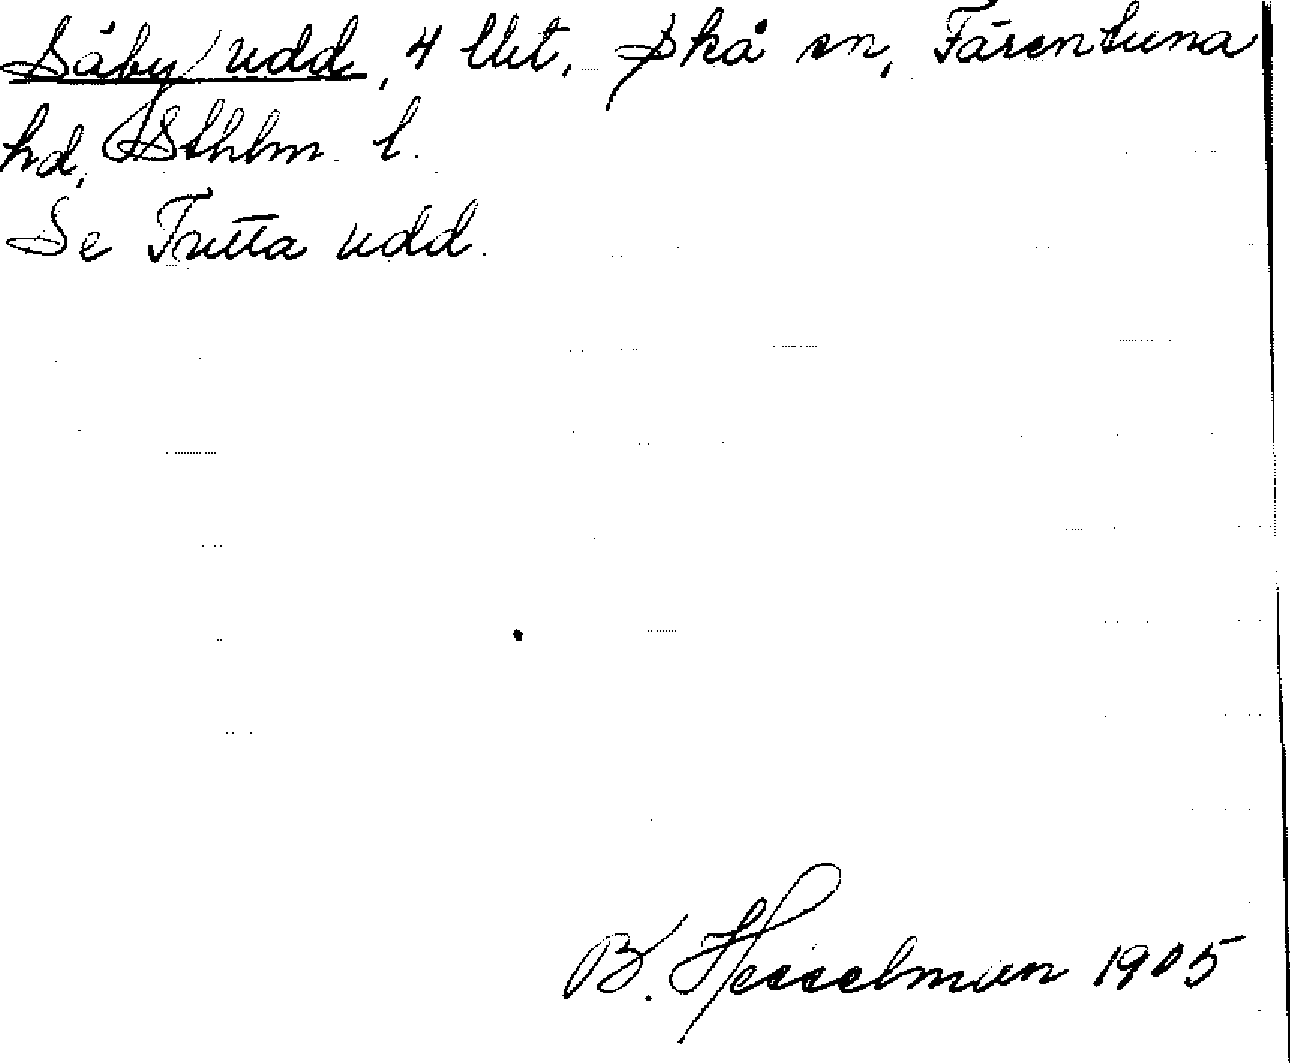 Säby udd, 4 Utt. Skå sn, Färentuna
hd, Sthlm. l.
Se Trutta udd.
B. Hesselman 1905